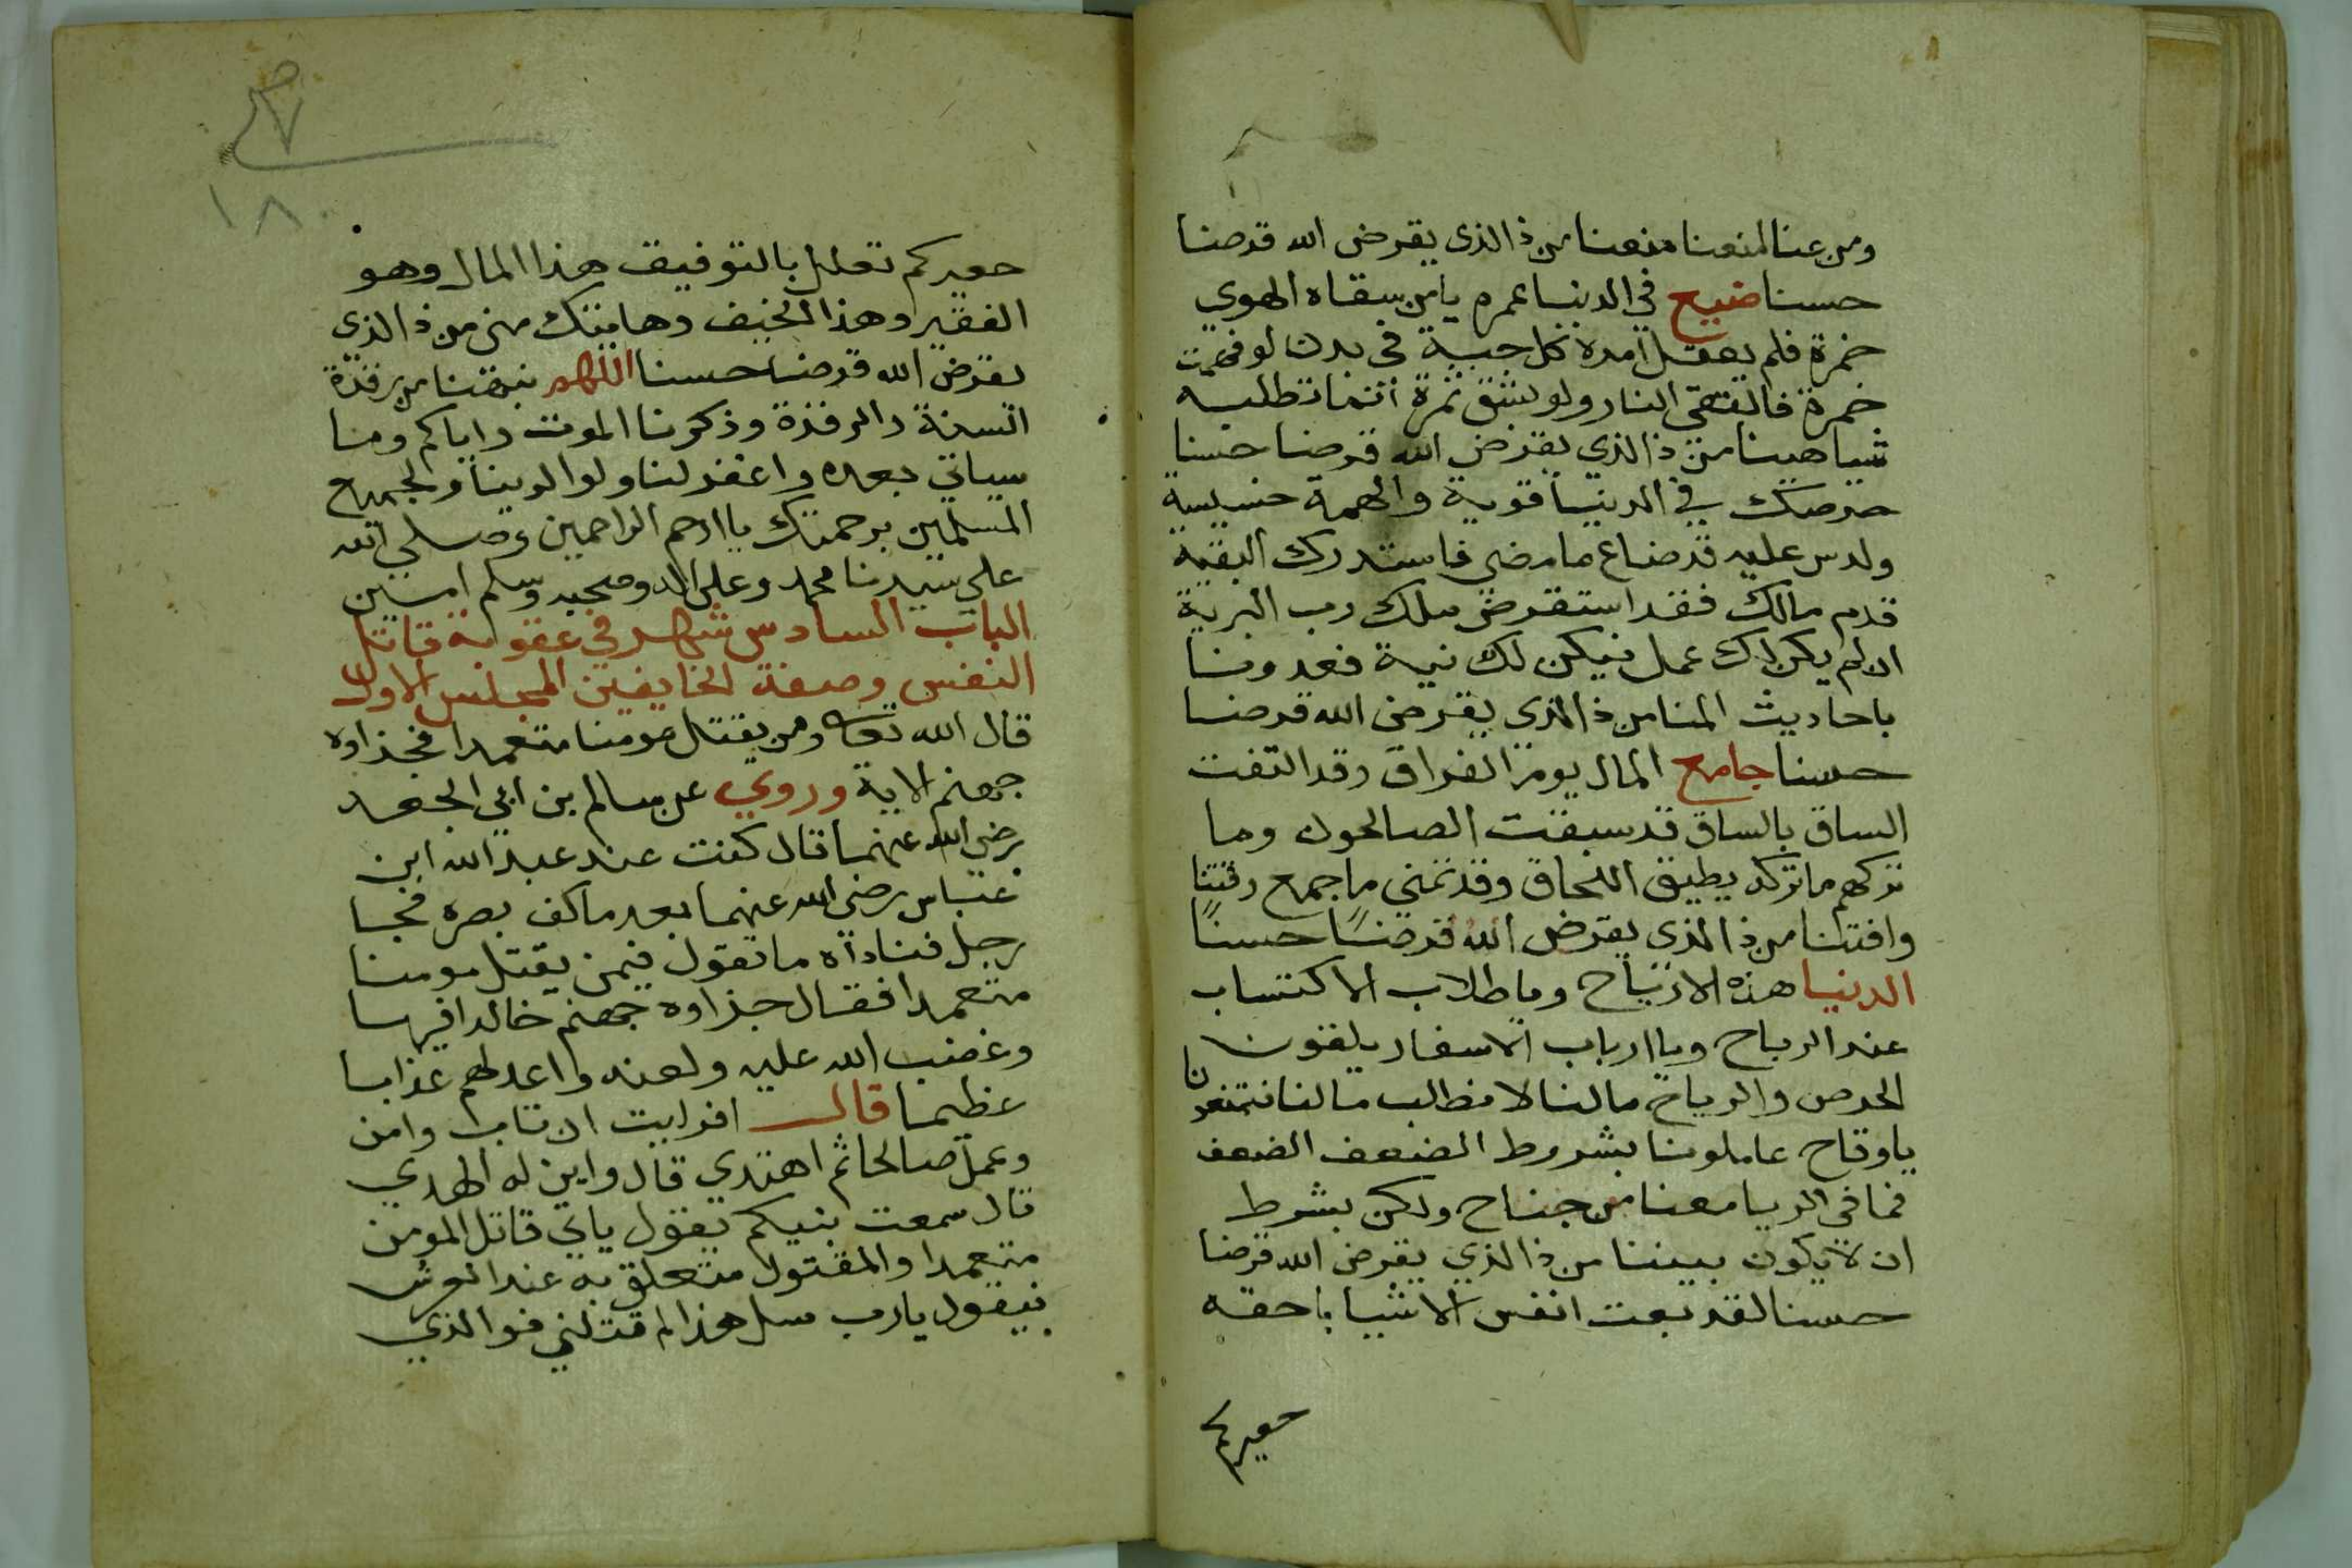 ومن عنا لمنعنا منعنا من ذا الذى يقرض الله قرضا
حسنا ضيع في الدنيا عمره يا من سقاه الهوي
خمرة فلم يعقل امره كل حبة في بدن لو فهمت
خمرة فالقى النار ولو بشق تمرة انما تطلب
شيا هينا من ذا الذي يقرض الله قرضا حسنا
حرصك في الدنيا قوية والهمة خسيسة
ولدس عليه قد ضاع ما مضي فاستدرك البقية
قدم مالك فقد استقرض ملك رب البرية
ان لم يكن لك عمل فيكن لك نية فعدونا
باحاديث المنا من ذا الذى يقرض الله قرضا
حسنا جامع المال يوم الفراق وقد التفت
الساق بالساق قد سبقت الصالحون وما
تركهم ما تركه يطيق اللحاق وقد تمني ما جمع وقتنا
وافتنا من ذا الذى يقرض الله قرضًا حسنًا
الدنيا هذه الارتياح وما طلاب الاكتساب
عند الرباح ويا ارباب الاسفار يلقون
الحرص والرياح مالنا لا نطالب مالنا
يا وقاح عاملونا بشروط الضعف الضعف
فما في الربا معنا من جناح ولكن بشرط
ان لا يكون بيننا من ذا الذي يقرض الله قرضا
حسنا لقد بعت انفس الاشيا باحقه
حعيركم
١٨٠
حعيركم تعلل بالتوفيق هذا المال وهو
الفقير وهذا الخيف وها منك منى من ذا الذى
يقرض الله قرضا حسنا اللهم نبهنا من رقدة
السنة والرقدة وذكرنا الموت واياكم وما
سياتي بعده واغفر لنا ولوالدينا ولجميع
المسلمين برحمتك يا ارحم الراحمين وصلي الله
على سيدنا محمد وعلى اله وصحبه وسلم امين
الباب السادس شهر في عقوبة قاتل
النفس وصفة الخايفين المجلس الاول
قال الله تعا ومن يقتل مومنا متعمدا فجزاوه
جهنم الاية وروي عن سالم بن ابي الجعد
رضي الله عنهما قال كنت عند عبد الله ابن
عباس رضى الله عنهما بعد ما كف بصره فجا
رجل فناداه ما تقول فيمن يقتل مومنا
متعمدا فقال جزاوه جهنم خالدا فيها
وغضب الله عليه ولعنه واعد لهم عذابا
عظيما قال افرايت ان تاب وامن
وعمل صالحا ثم اهتدي قال واين له الهدي
قال سمعت بنيكم يقول ياي قاتل المومن
متعمدا والمقتول متعلق به عند العرش
فيقول يا رب سل هذا لم قتلني فو الذي